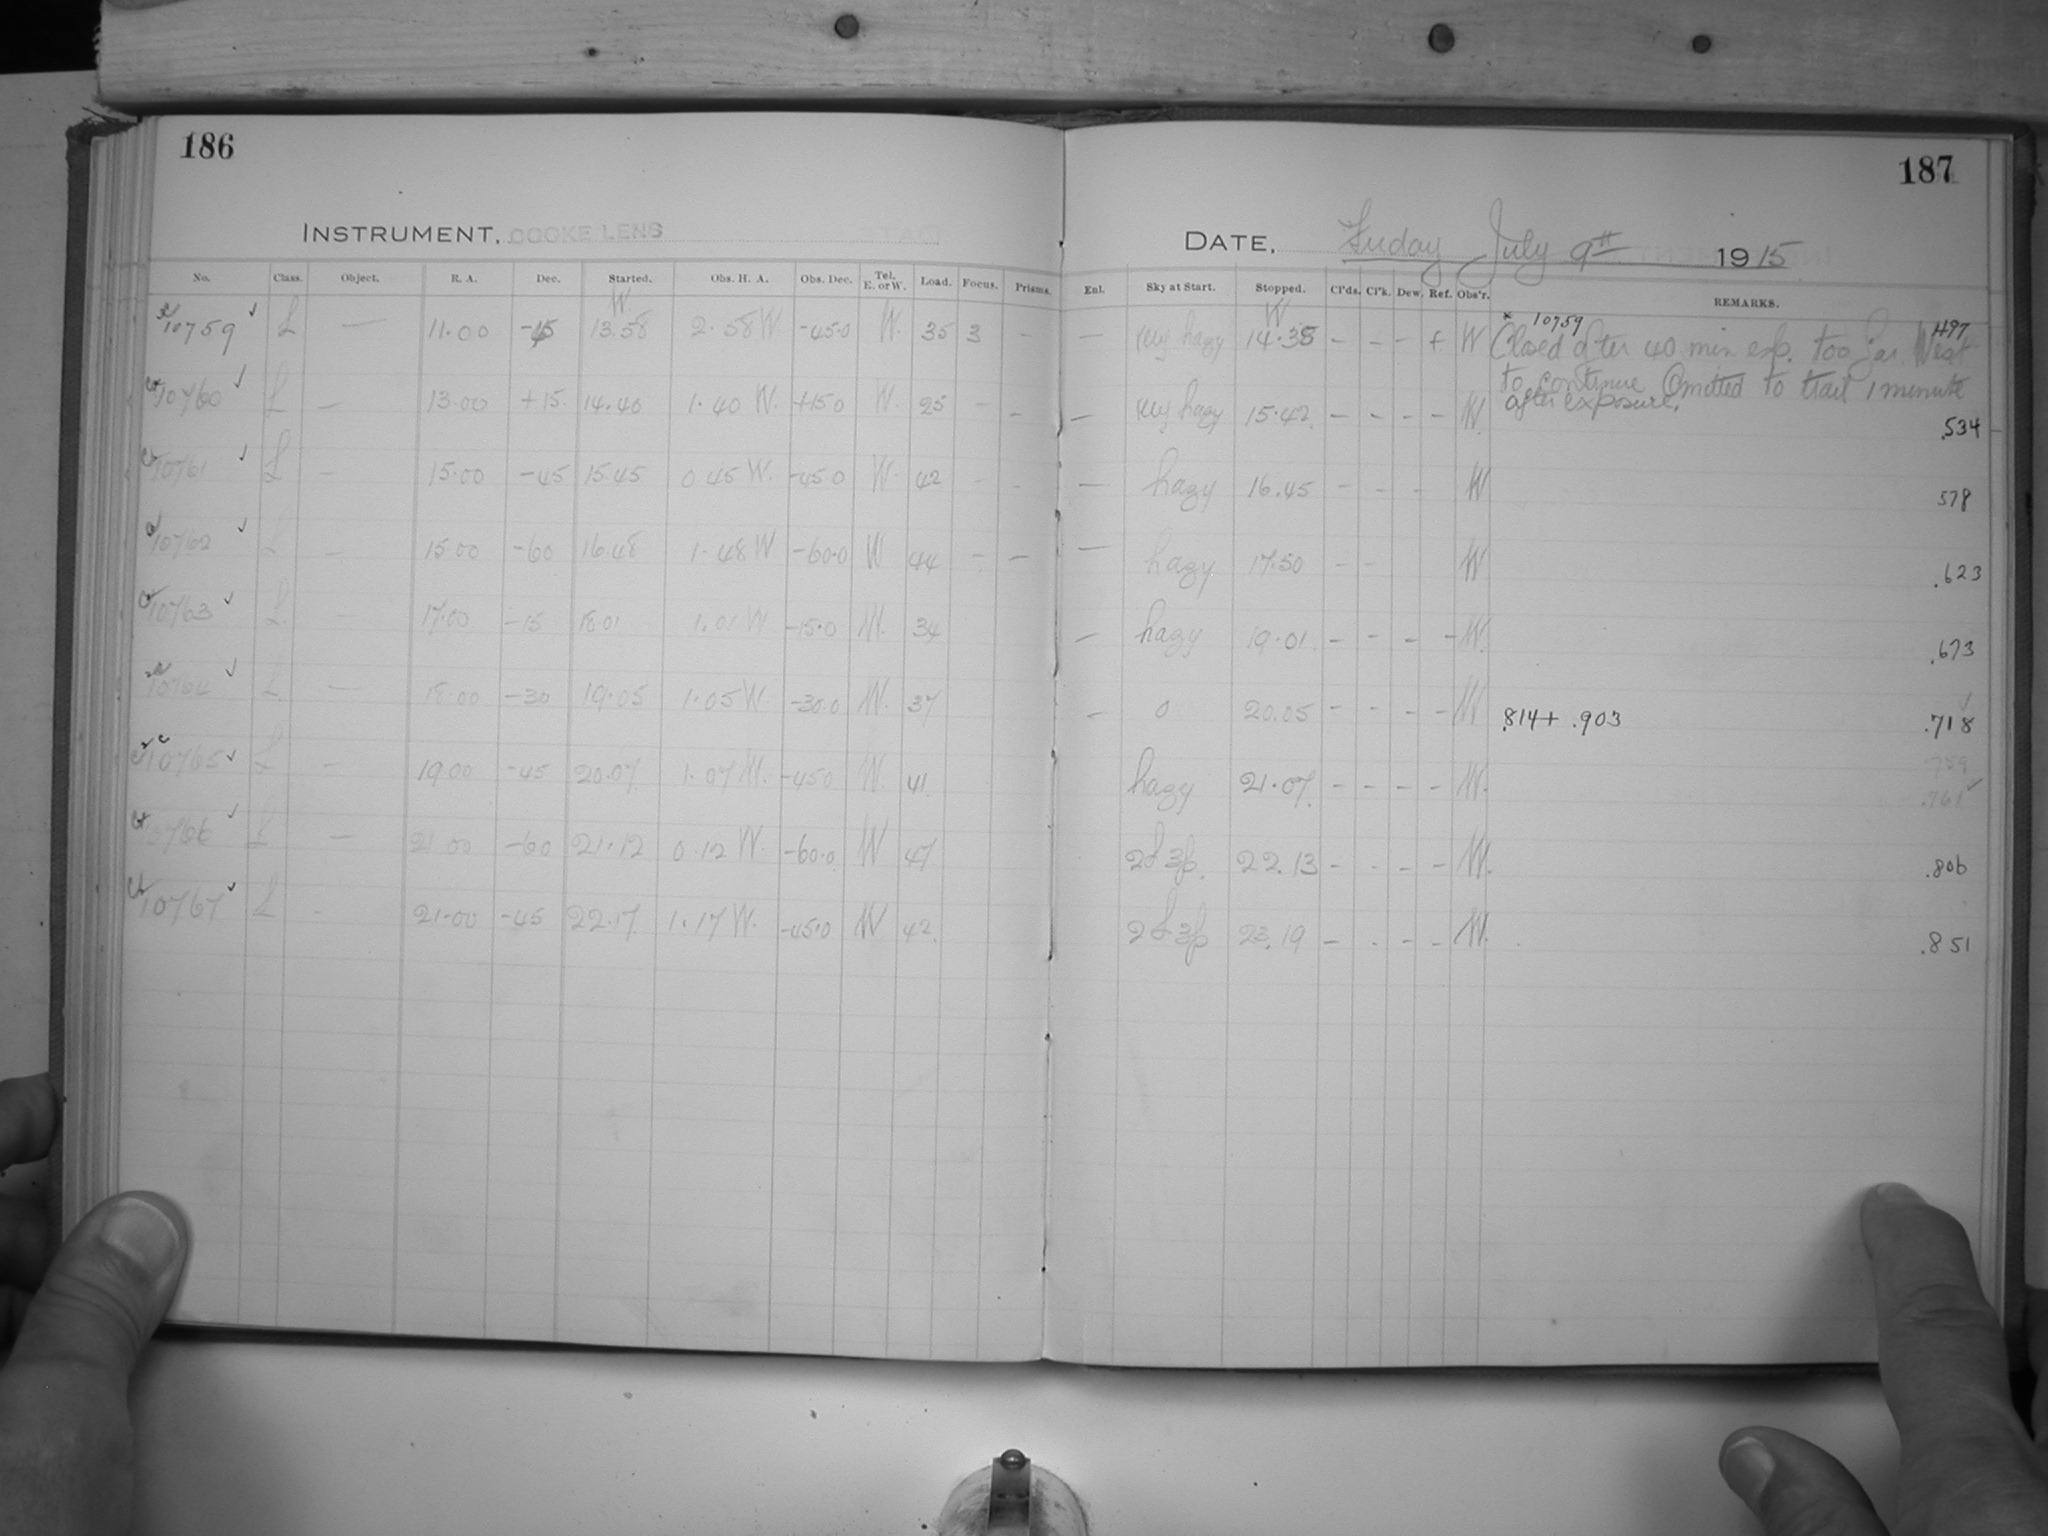 186
INSTRUMENT, COOKE LENS
No. Class. Object. R. A. Dec. Started. Obs. H. A. Obs. Dec. Tel. E. or W. Load. Focus. Prisms.
W
10759 ✓ L — 11.00 -45 13.58 2.58 W -45.0 W. 35 3 -
10760 ✓ L — 13.00 +15. 14.40 1.40 W. +15.0 W. 25 - -
10761 ✓ L - 15.00 -45 15.45 0.45 W. -45.0 W. 42 - -
10762 ✓ L - 15.00 -60 16.48 1.48 W -60.0 W 44 - —
10763 ✓ L — 17.00 -15 18.01 1.01 W -15.0 W. 34
10764 ✓ L — 18.00 -30 19.05 1.05 W -30.0 W. 37
10765 ✓ L - 19.00 -45 20.07 1.07 W. -45.0 W. 41
10766 ✓ L — 21.00 -60 21.12 0.12 W. -60.0 W 47
10767 ✓ L - 21.00 -45 22.17 1.17 W. -45.0 W 42.
187
DATE, Friday July 9th 1915
Enl. Sky at Start. Stopped. Cl'ds. Cl'k. Dew. Ref. Obs'r. REMARKS.
W
* 10759
— very hazy 14.38 - - - f W Closed after 40 min exp. too far West .497
to continue Omitted to trail 1 minute
— very hazy 15.42. - - - - W. after exposure. .534
— hazy 16.45 - - - W 578
— hazy 17.50 - - W .623
— hazy 19.01 - - - - W. .673
- 0 20.05 - - - - W .814 + .903 .718 ✓
.759
hazy 21.07. - - - - W. .761 ✓
22.13 - - - - W. .806
23.19 - - - - W. .851